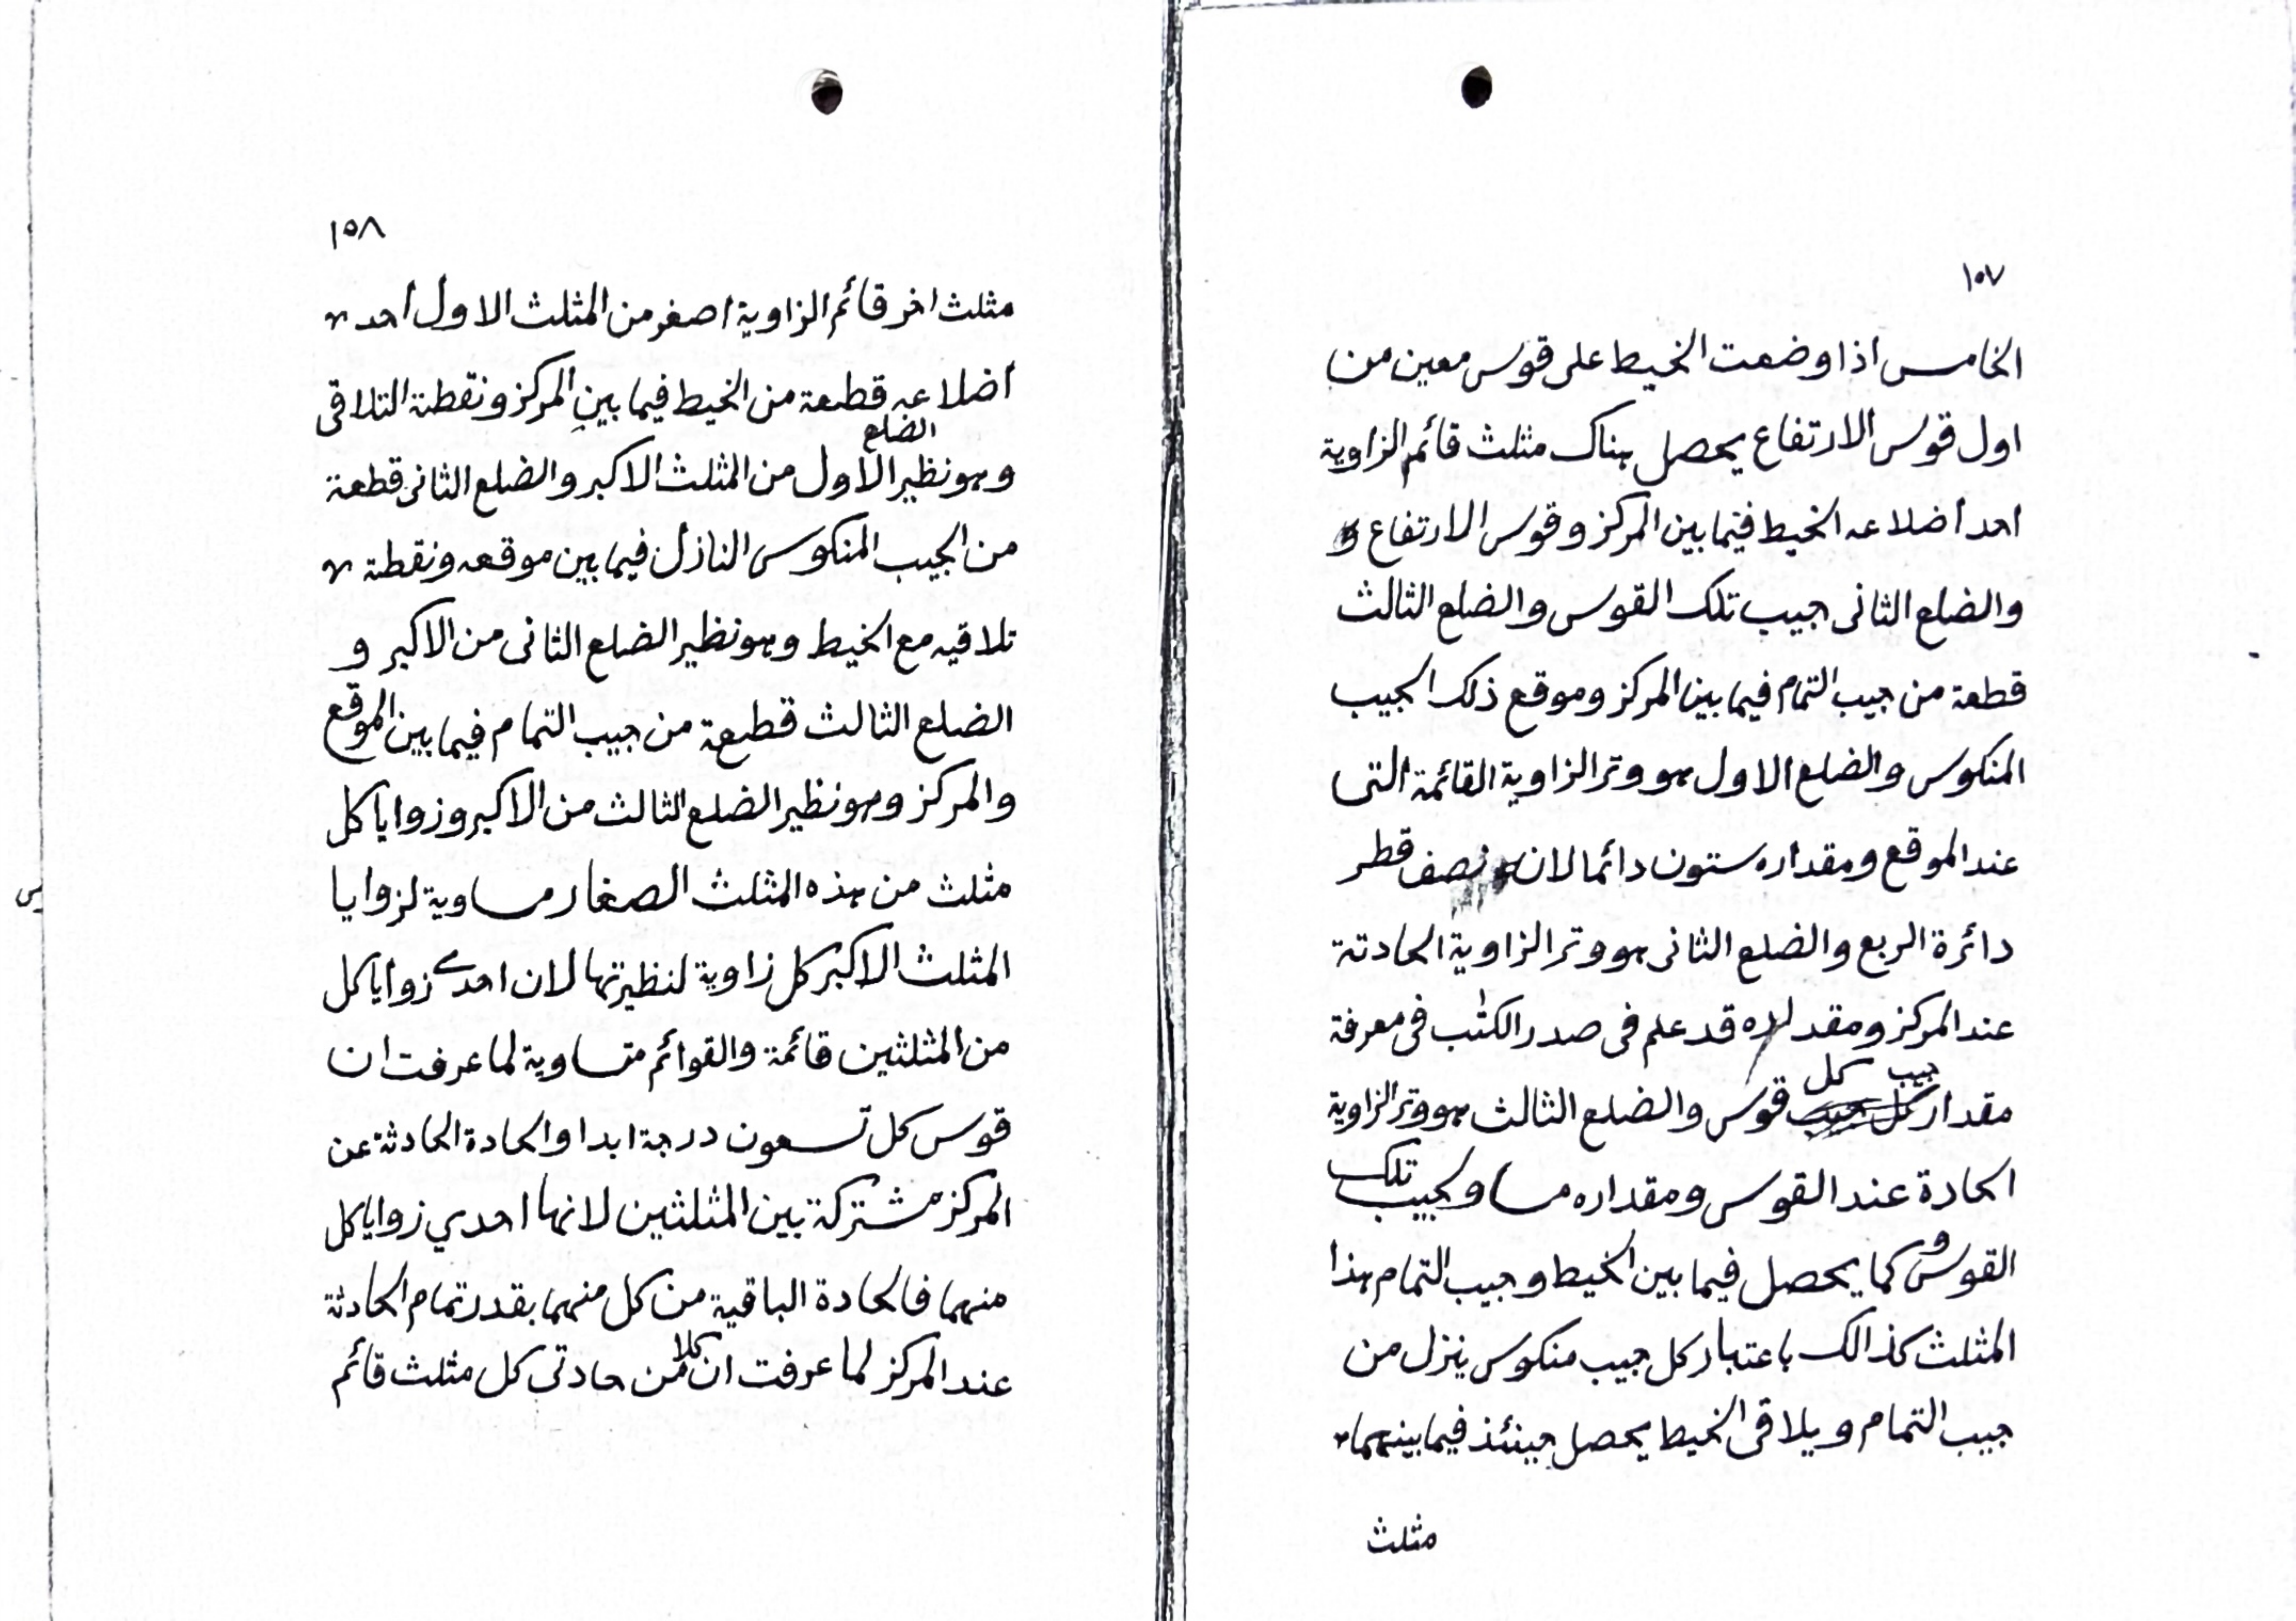 ١٥٧
الخامس اذا وضعت الخيط على قوس معين من
اول قوس الارتفاع يحصل هناك مثلث قائم الزاوية
احد أضلاعه الخيط فيما بين المركز وقوس الارتفاع
والضلع الثانى جيب تلك القوس والضلع الثالث
قطعة من جيب التمام فيما بين المركز وموقع ذلك الجيب
المنكوس والضلع الاول هو وتر الزاوية القائمة التى
عند الموقع ومقداره ستون دائما لان نصف قطر
دائرة الربع والضلع الثانى هو وتر الزاوية الحادثة
عند المركز ومقداره قد علم فى صدر الكتب فى معرفة
مقدار جيب كل قوس والضلع الثالث هو وتر الزاوية
الحادة عند القوس ومقداره مساو لجيب تلك
القوس و كما يحصل فيما بين الخيط وجيب التمام هذا
المثلث كذالك باعتبار كل جيب منكوس ينزل من
جيب التمام ويلاقى الخيط يحصل حينئذ فيما بينهما
مثلث
١٥٨
مثلث اخر قائم الزاوية اصغر من المثلث الاول أحد
أضلاعه قطعة من الخيط فيما بين المركز ونقطة التلاقى
وهو نظير الضلع الأول من المثلث الاكبر والضلع الثانى قطعة
من الجيب المنكوس النازل فيما بين موقعه ونقطة
تلاقيه مع الخيط وهو نظير الضلع الثانى من الاكبر و
الضلع الثالث قطعة من جيب التمام فيما بين الموقع
والمركز وهو نظير الضلع الثالث من الاكبر وزوايا كل
مثلث من هذه المثلث الصغار مساوية لزوايا
المثلث الاكبر كل زاوية لنظيرتها لان احدى زوايا كل
من المثلثين قائمة والقوائم متساوية لما عرفت ان
قوس كل تسعون درجة ابدا والحادة الحادثة عن
المركز مشتركة بين المثلثين لانها احدي زوايا كل
منهما فالحادة الباقية من كل منهما بقدر تمام الحادثة
عند المركز لما عرفت ان كلا من حادتى كل مثلث قائم